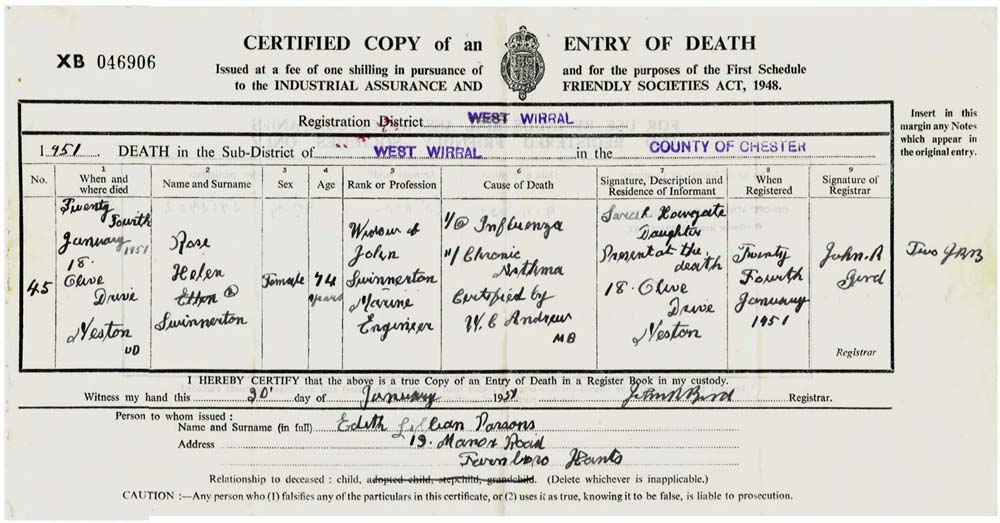 CERTIFIED COPY of an ENTRY OF DEATH
XB 046906
Issued at a fee of one shilling in pursuance of and for the purposes of the First Schedule
to the INDUSTRIAL ASSURANCE AND FRIENDLY SOCIETIES ACT, 1948.
Registration District WEST WIRRAL
Insert in this
margin any Notes
which appear in
the original entry.
1951. DEATH in the Sub-District of WEST WIRRAL in the COUNTY OF CHESTER
No.
1
When and
where died
2
Name and Surname
3
Sex
4
Age
5
Rank or Profession
6
Cause of Death
7
Signature, Description and
Residence of Informant
8
When
Registered
9
Signature of
Registrar
45
Twenty
Fourth
January 1951
18.
Olive
Drive
Neston
UD
Rose
Helen
Swinnerton
Female
74
years
Widow of
John
Swinnerton
Marine
Engineer
Influenza
Chronic
Asthma
Certified by
W. C Andrew
MB
Sarah Howgate
Daughter
Present at the
death
18. Olive
Drive
Neston
Twenty
Fourth
January
1951
John. R
Bird
Registrar
Two JRB
I HEREBY CERTIFY that the above is a true Copy of an Entry of Death in a Register Book in my custody.
Witness my hand this 30' day of January 1951 John R Bird Registrar.
Person to whom issued :
Name and Surname (in full) Edith Lillian Parsons
Address 19. Manor Road
Farnboro Hants
Relationship to deceased : child, adopted child, stepchild, grandchild. (Delete whichever is inapplicable.)
CAUTION :—Any person who (1) falsifies any of the particulars in this certificate, or (2) uses it as true, knowing it to be false, is liable to prosecution.